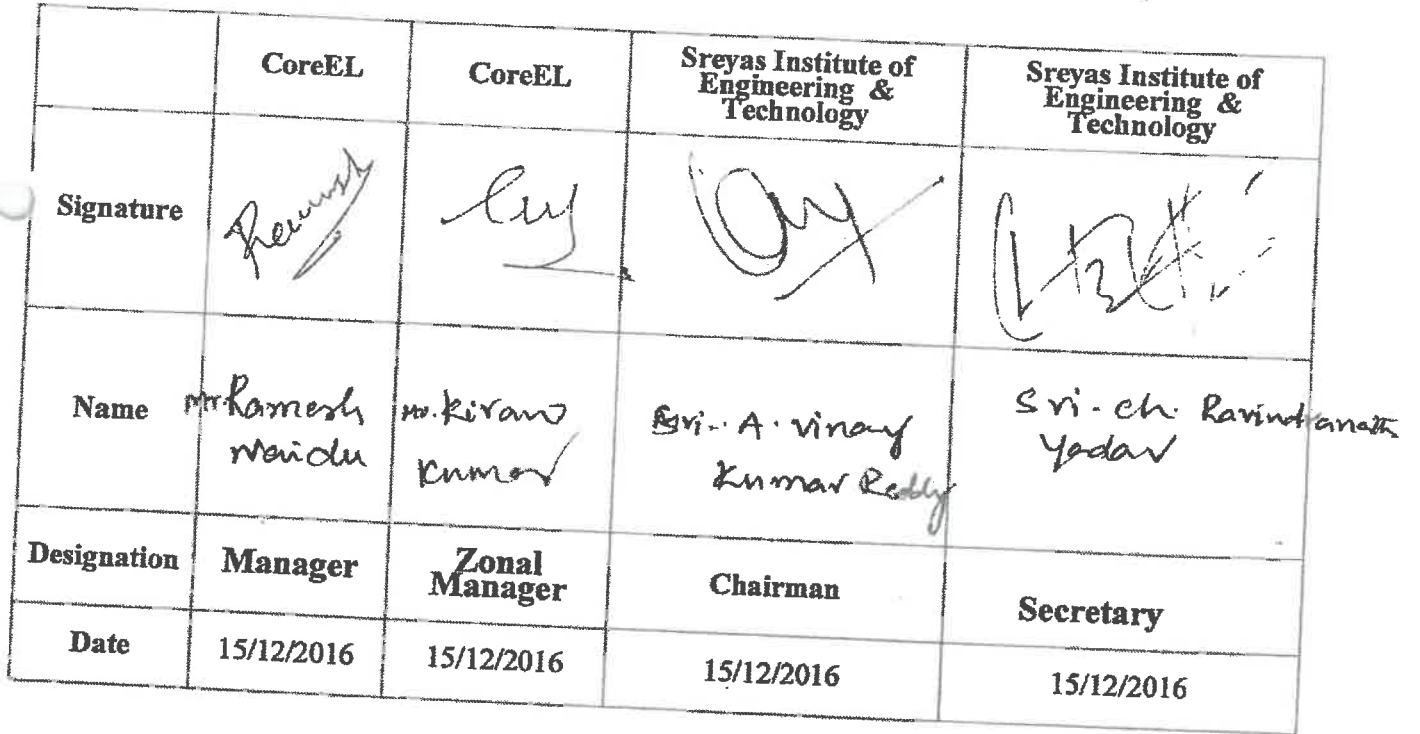 CoreEL
CoreEL
Sreyas Institute of
Engineering &
Technology
Sreyas Institute of
Engineering &
Technology
Signature
Name
Mr. Ramesh
Naidu
Mr. Kiran
Kumar
Sri. A. Vinay
Kumar Reddy
Sri. Ch. Ravindranath
Yadav
Designation
Manager
Zonal
Manager
Chairman
Secretary
Date
15/12/2016
15/12/2016
15/12/2016
15/12/2016